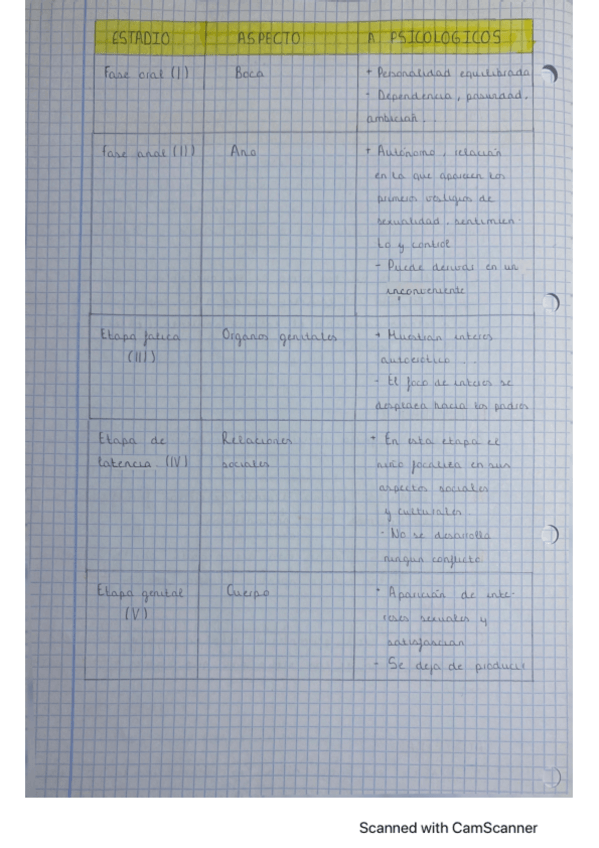 ESTADIO ASPECTO A PSICOLOGICOS
Fase oral (I) Boca + Personalidad equilibrada
- Dependencia, pasividad,
ambición...
Fase anal (II) Ano + Autónomo, relación
en la que aparecen los
primeros vestigios de
sexualidad, sentimien-
to y control
- Puede derivar en un
inconveniente
Etapa fálica Organos genitales + Muestran interes
(III) autoerótico...
- El foco de interes se
desplaza hacia los padres
Etapa de Relaciones + En esta etapa el
latencia (IV) sociales niño focaliza en sus
aspectos sociales
y culturales
- No se desarrolla
ningun conflicto
Etapa genital Cuerpo + Aparición de inte-
(V) reses sexuales y
satisfacción
- Se deja de producir
Scanned with CamScanner